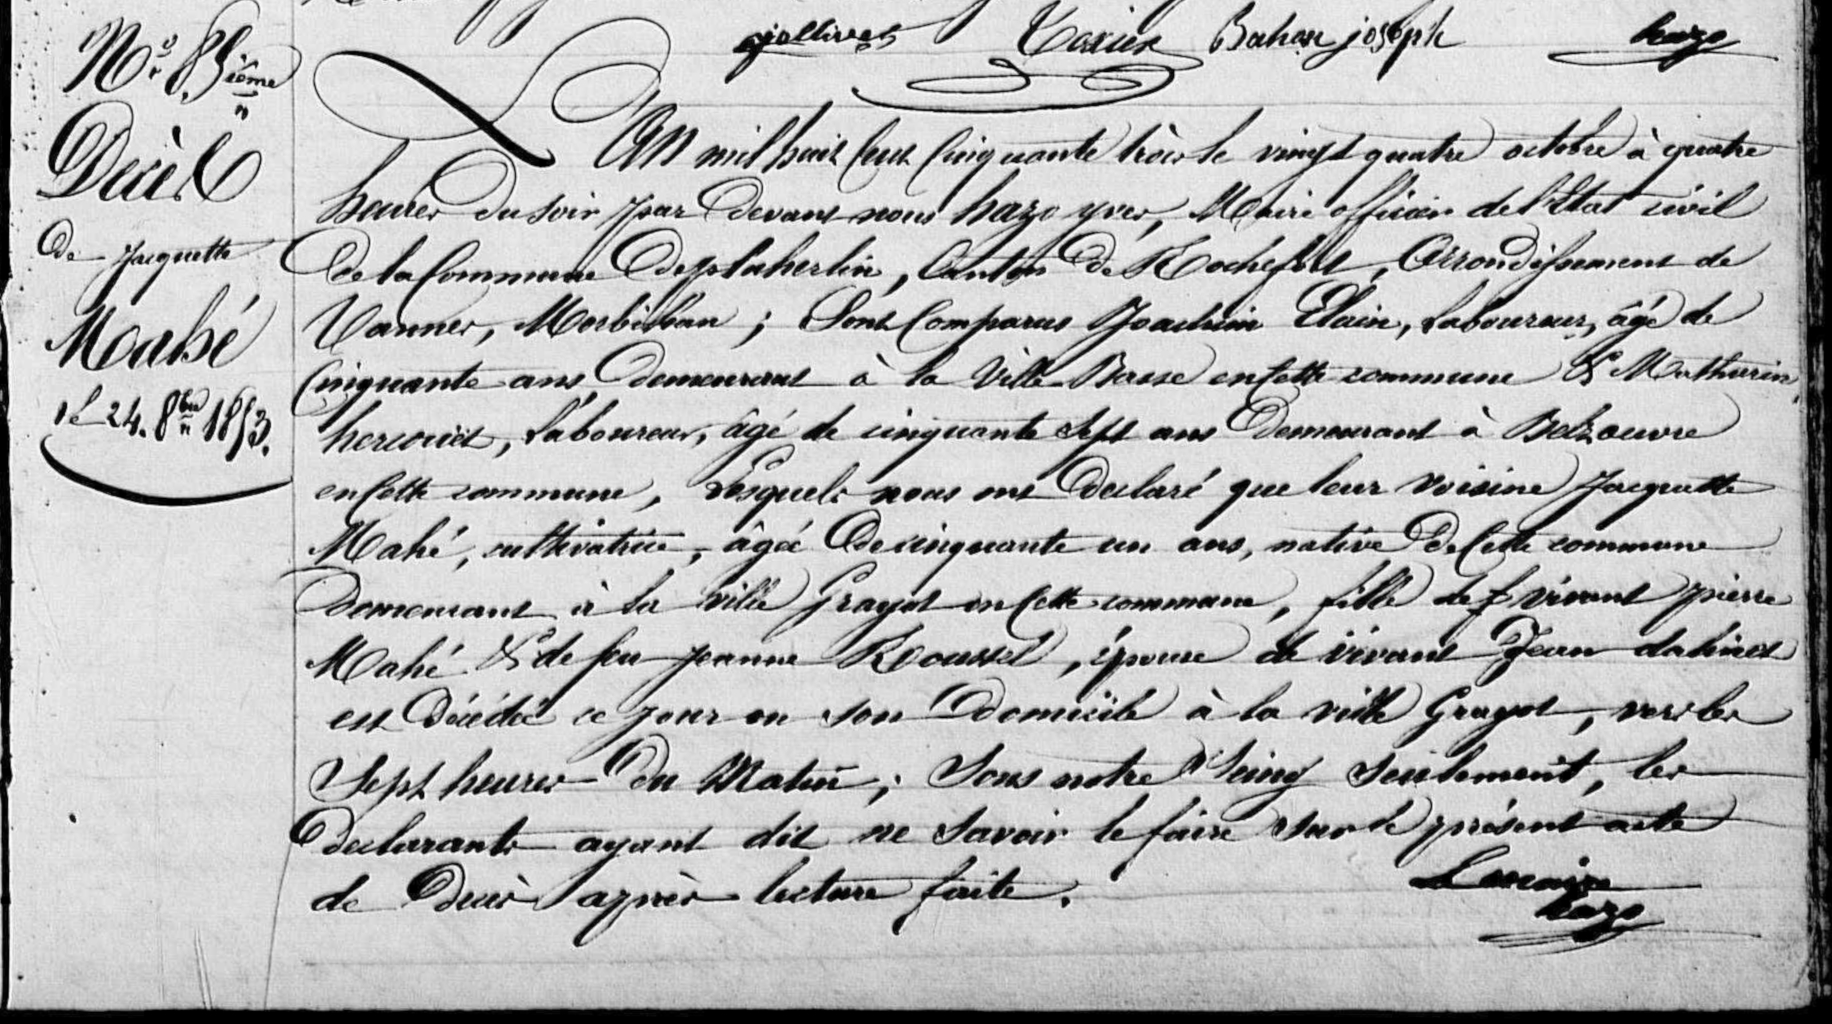 jollivet Texier Bahon joseph hazo
No 85ième
Décès
De Jacquette
Mahé
le 24. 8bre 1853.
L'An mil huit Cent Cinquante trois le vingt quatre octobre à quatre
heures du soir par Devant nous hazo yves, Maire officier de l'Etat civil
de la Commune De plaherlin, Canton De Rochefort, Arrondissement de
Vannes, Morbihan ; Sont Comparus Joachim Elain, Laboureur, âgé de
Cinquante ans Demeurant à la Ville Basse en Cette commune & Mathurin
hercouet, Laboureur, âgé de cinquante sept ans Demeurant à Belzouvre
en Cette commune, Lesquels nous ont Declaré que leur voisine Jacquette
Mahé, cultivatrice, âgée De cinquante un ans, native De Cette commune
Demeurant à la ville Grayot en Cette commune, fille de vivant pierre
Mahé & de feu Jeanne Roussel, épouse de vivant Jean dahirel
est Décédée ce jour en son Domicile à la ville Grayot, vers les
Sept heures Du Matin ; Sous notre Seing Seulement, les
Declarants ayant dit ne Savoir le faire sur le présent acte
de Décès après lecture faite.
Le maire
hazo